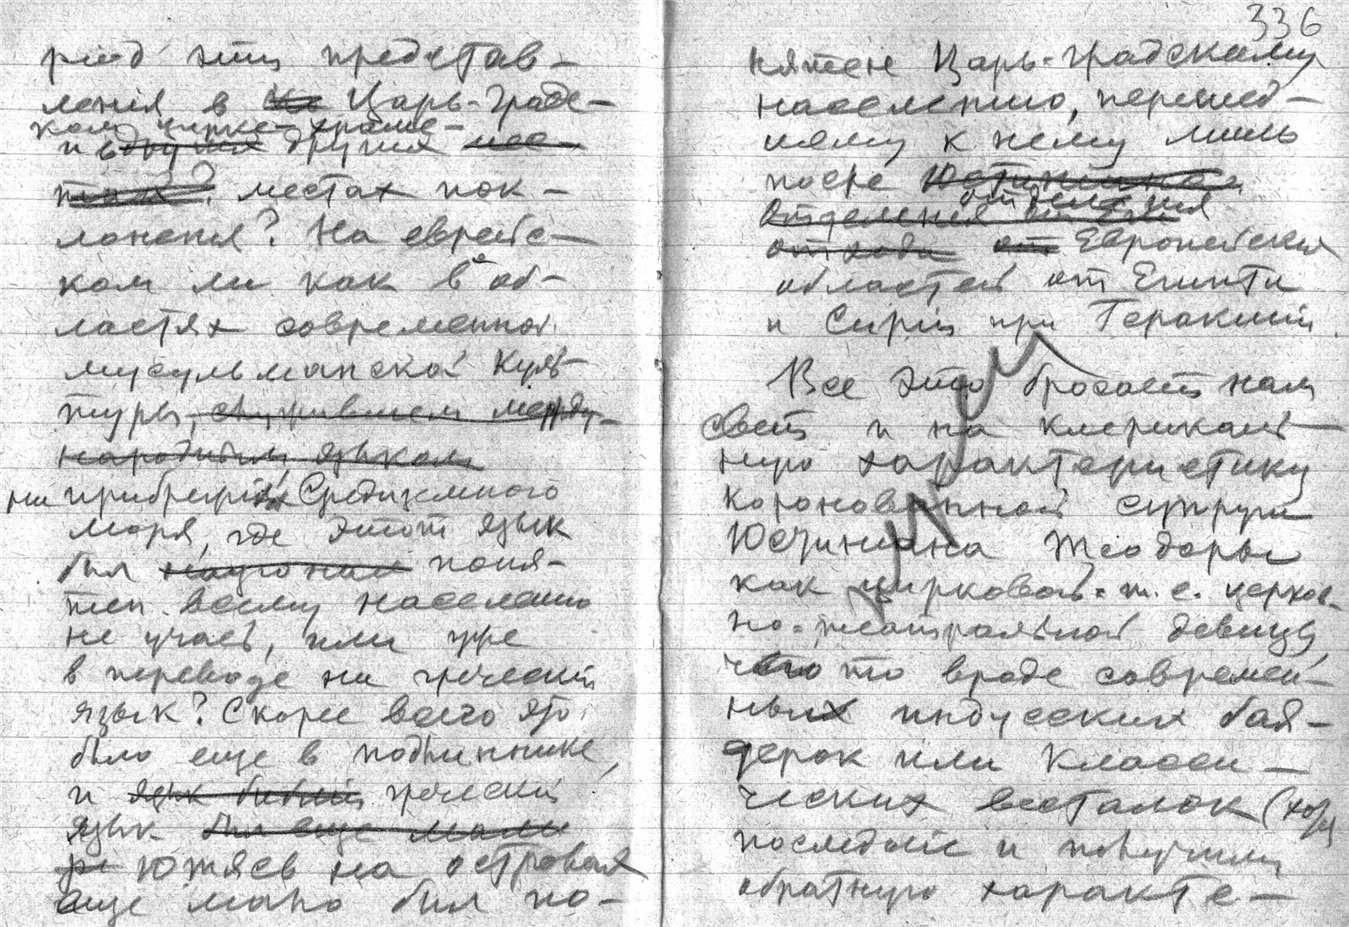 эти представ-
ления в Царь-Град-
ком цирке-храме-
и в других
местах пок-
лонения? На еврейс-
ком ли как в об-
ластях современной
мусульманской куль-
туры, служившем между-
народным языком
на прибрежьях Средиземного
моря, где этот язык
был поня-
тен всему населению
не учась, или уже
в переводе на греческий
язык? Скорее всего это
было еще в подлиннике,
и язык греческий
язык был еще мало
ютясь на островах
еще мало был по-
336
нятен Царь-градскому
населению, перешед-
шему к нему лишь
после
отделения
от Европейских
областей от Египта
и Сирии при Гераклии.
Все это бросает нам
свет и на клерикаль-
ную характеристику
коронованной супруги
Юстиниана Теодоры
как цирковой- т. е. церков-
но-театральной девицы,
что то вроде современ-
ных индусских бая-
дерок или класси-
ческих весталок (хотя
последние и получили
обратную характе-